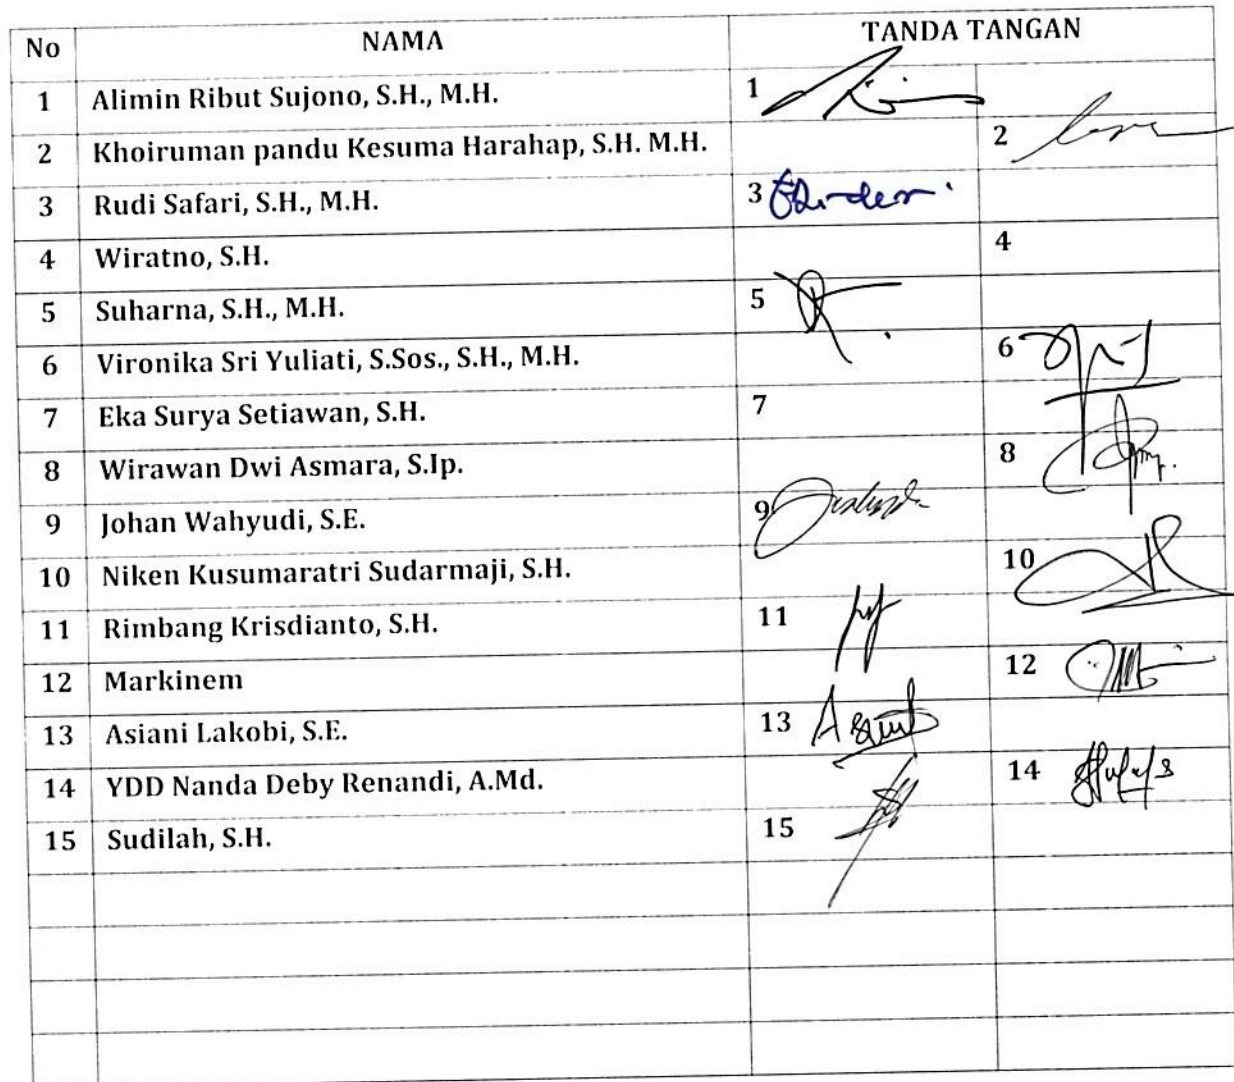 No NAMA TANDA TANGAN
1 Alimin Ribut Sujono, S.H., M.H. 1
2 Khoiruman pandu Kesuma Harahap, S.H. M.H. 2
3 Rudi Safari, S.H., M.H. 3
4 Wiratno, S.H. 4
5 Suharna, S.H., M.H. 5
6 Vironika Sri Yuliati, S.Sos., S.H., M.H. 6
7 Eka Surya Setiawan, S.H. 7
8 Wirawan Dwi Asmara, S.Ip. 8
9 Johan Wahyudi, S.E. 9
10 Niken Kusumaratri Sudarmaji, S.H. 10
11 Rimbang Krisdianto, S.H. 11
12 Markinem 12
13 Asiani Lakobi, S.E. 13
14 YDD Nanda Deby Renandi, A.Md. 14
15 Sudilah, S.H. 15